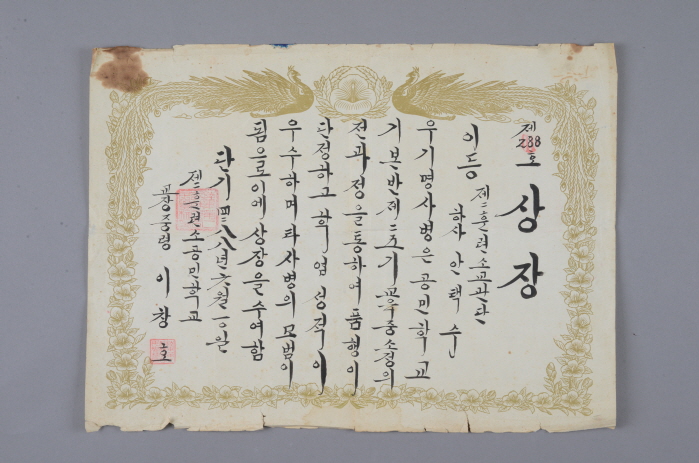 제288호
상장
제二훈련소교관단
하사 안택수
이등
우기명사병은 공민학교
기본반제二五기 교육중소정의
전과정을통하여품행이
단정하고 학업성적이
우수하며 타사병의 모범이
됨으로이에 상장을 수여함
단기四二八八년六월一일
제二훈련소공민학교
교장중령 이창호